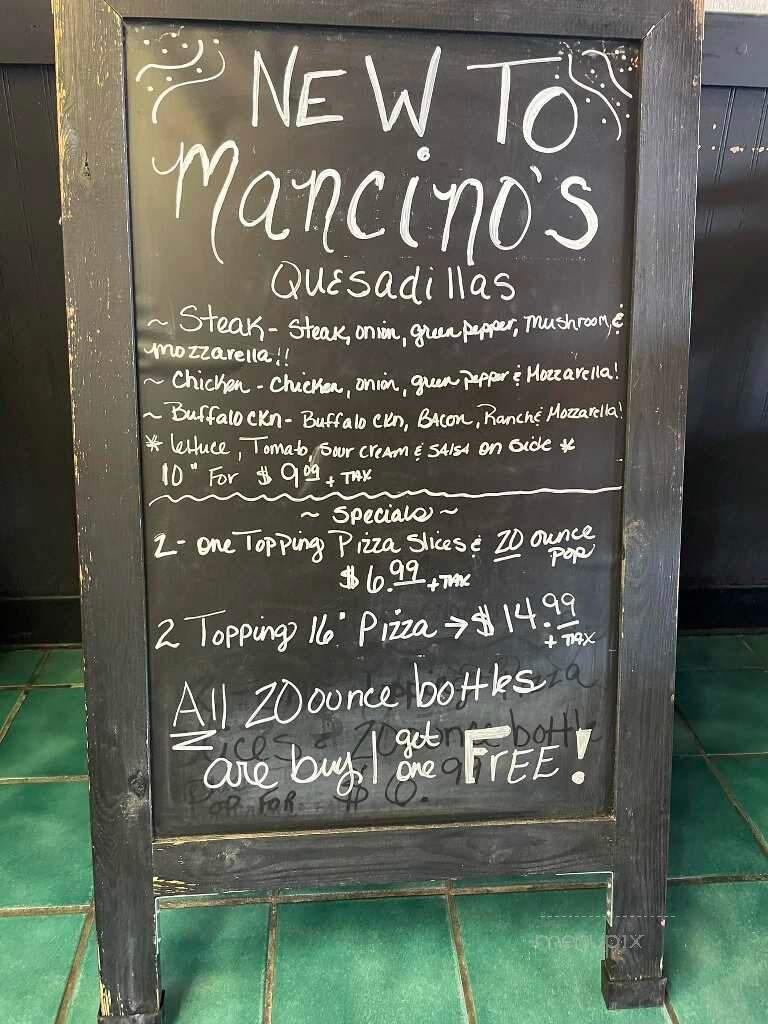 NEW TO
Mancino's
Quesadillas
~ Steak - Steak, onion, green pepper, Mushroom, &
mozzarella!!
~ Chicken - Chicken, onion, green pepper & Mozzarella!
~ Buffalo CKN - Buffalo CKN, Bacon, Ranch & Mozzarella!
* lettuce, Tomato, Sour Cream & Salsa on side *
10" For $9.09 + TAX
~ Specials ~
2 - one Topping Pizza Slices & 20 ounce
pop
$6.99 + TAX
2 Topping 16" Pizza → $14.99
+ TAX
All 20 ounce bottles
are buy 1 get
one FREE!
menupix